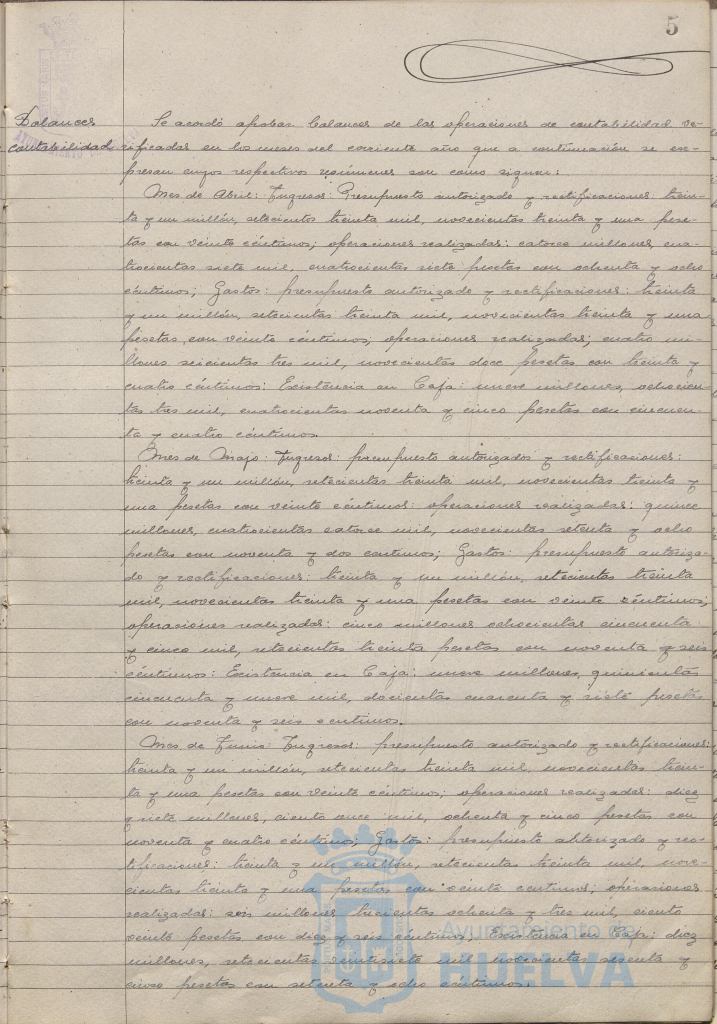 5
Balances contabilidad
Se acordó aprobar balances de las operaciones de contabilidad ve-
rificadas en los meses del corriente año que a continuación se ex-
presan cuyos respectivos resúmenes son como siguen:
Mes de Abril: Ingresos: Presupuesto autorizado y rectificaciones: trein-
ta y un millón, setecientos treinta mil, novecientas treinta y una pese-
tas con veinte céntimos; operaciones realizadas: catorce millones, cua-
trocientas siete mil, cuatrocientas siete pesetas con ochenta y ocho
céntimos; Gastos: presupuesto autorizado y rectificaciones: treinta
y un millón, setecientas treinta mil, novecientas treinta y una
pesetas con veinte céntimos; operaciones realizadas; cuatro mi-
llones seicientas tres mil, novecientas doce pesetas con treinta y
cuatro céntimos: Existencia en Caja: nueve millones, ochocien-
tas tres mil, cuatrocientas noventa y cinco pesetas con cincuen-
ta y cuatro céntimos.
Mes de Mayo: Ingresos: presupuesto autorizados y rectificaciones:
treinta y un millón, setecientas treinta mil, novecientas treinta y
una pesetas con veinte céntimos: operaciones realizadas: quince
millones, cuatrocientas catorce mil, novecientas setenta y ocho
pesetas con noventa y dos centimos; Gastos: presupuesto autoriza-
do y rectificaciones: treinta y un millón, setecientas treinta
mil, novecientas treinta y una pesetas con veinte céntimos;
operaciones realizadas: cinco millones ochocientas cincuenta
y cinco mil, setecientas treinta pesetas con noventa y seis
céntimos: Existencia en Caja: nueve millones, quinientas
cincuenta y nueve mil, docientas cuarenta y siete pesetas
con noventa y seis centimos.
Mes de Junio Ingresos: presupuesto autorizado y rectificaciones:
treinta y un millón, setecientas treinta mil, novecientas trein-
ta y una pesetas con veinte céntimos; operaciones realizadas: diez
y siete millones, ciento once mil, ochenta y cinco pesetas con
noventa y cuatro céntimo; Gastos: presupuesto altorizado y rec-
tificaciones: treinta y un millón, setecienta treinta mil, nove-
cientas treinta y una pesetas con veinte centimos; operaciones
realizadas: seis millones trecientas ochenta y tres mil, ciento
veinte pesetas con diez y seis céntimos; Existencia en Caja: diez
millones, setecientas veintisiete mil novecientas sesenta y
cinco pesetas con setenta y ocho céntimos.
Ayuntamiento de
HUELVA